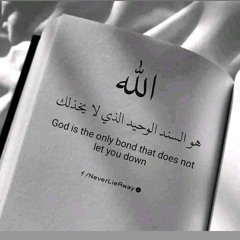 الله
هو السند الوحيد الذي لا يخذلك
God is the only bond that does not
let you down
f /NeverLieAway